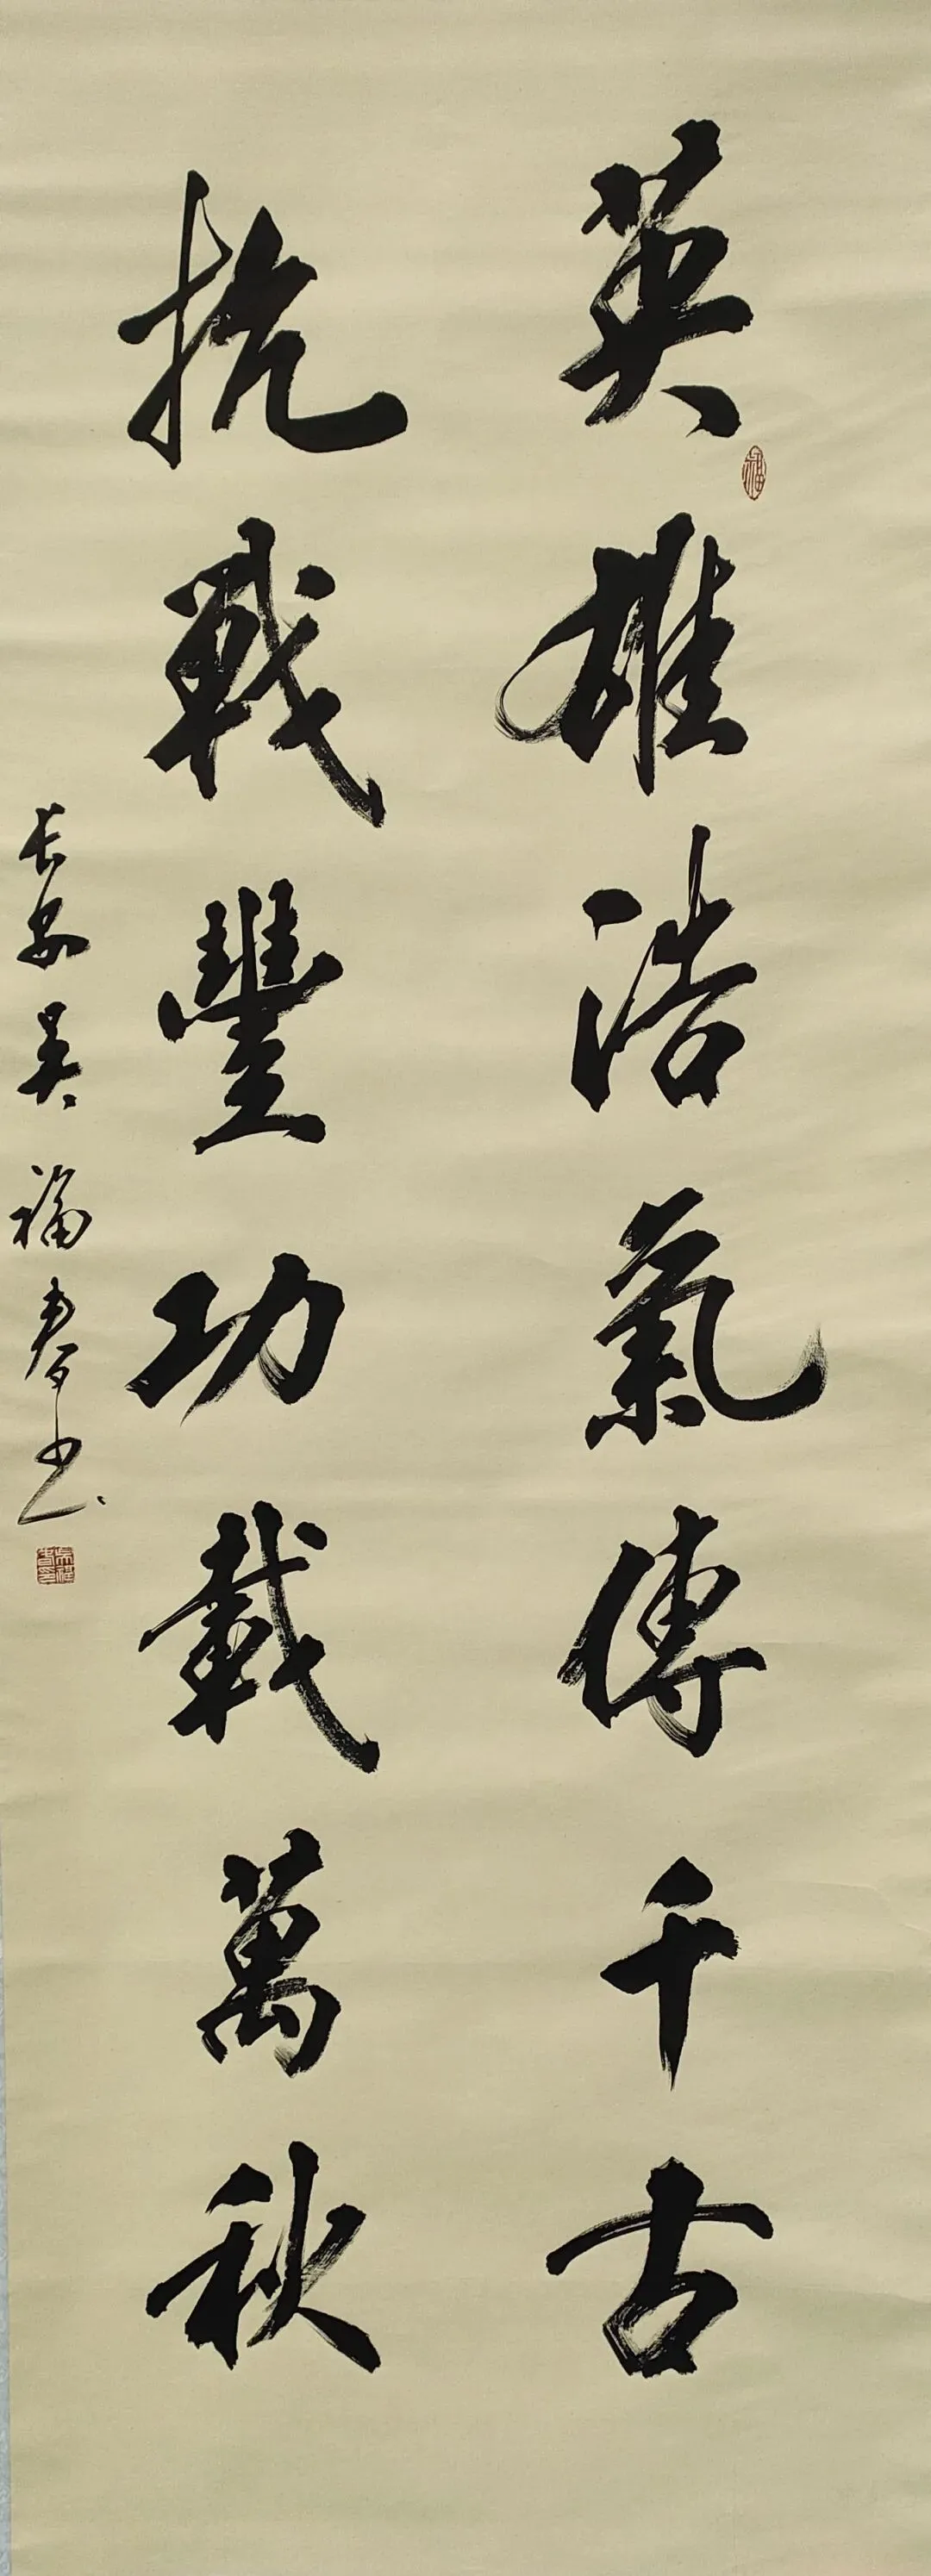 英雄浩氣傳千古
抗戰豐功載萬秋
長安吳福春書
福
吳福春印